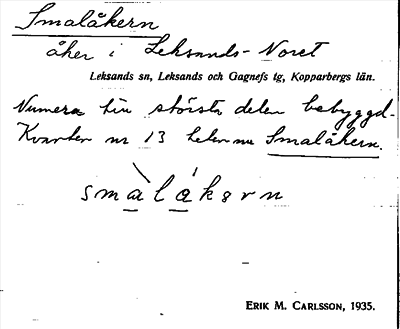 Smalåkern
åker i Leksands-Noret
Leksands sn, Leksands och Gagnefs tg, Kopparbergs län.
Numera till största delen bebyggd.
Kvarter nr 13 heter nu Smalåkern.
smàlákərn
ERIK M. CARLSSON, 1935.